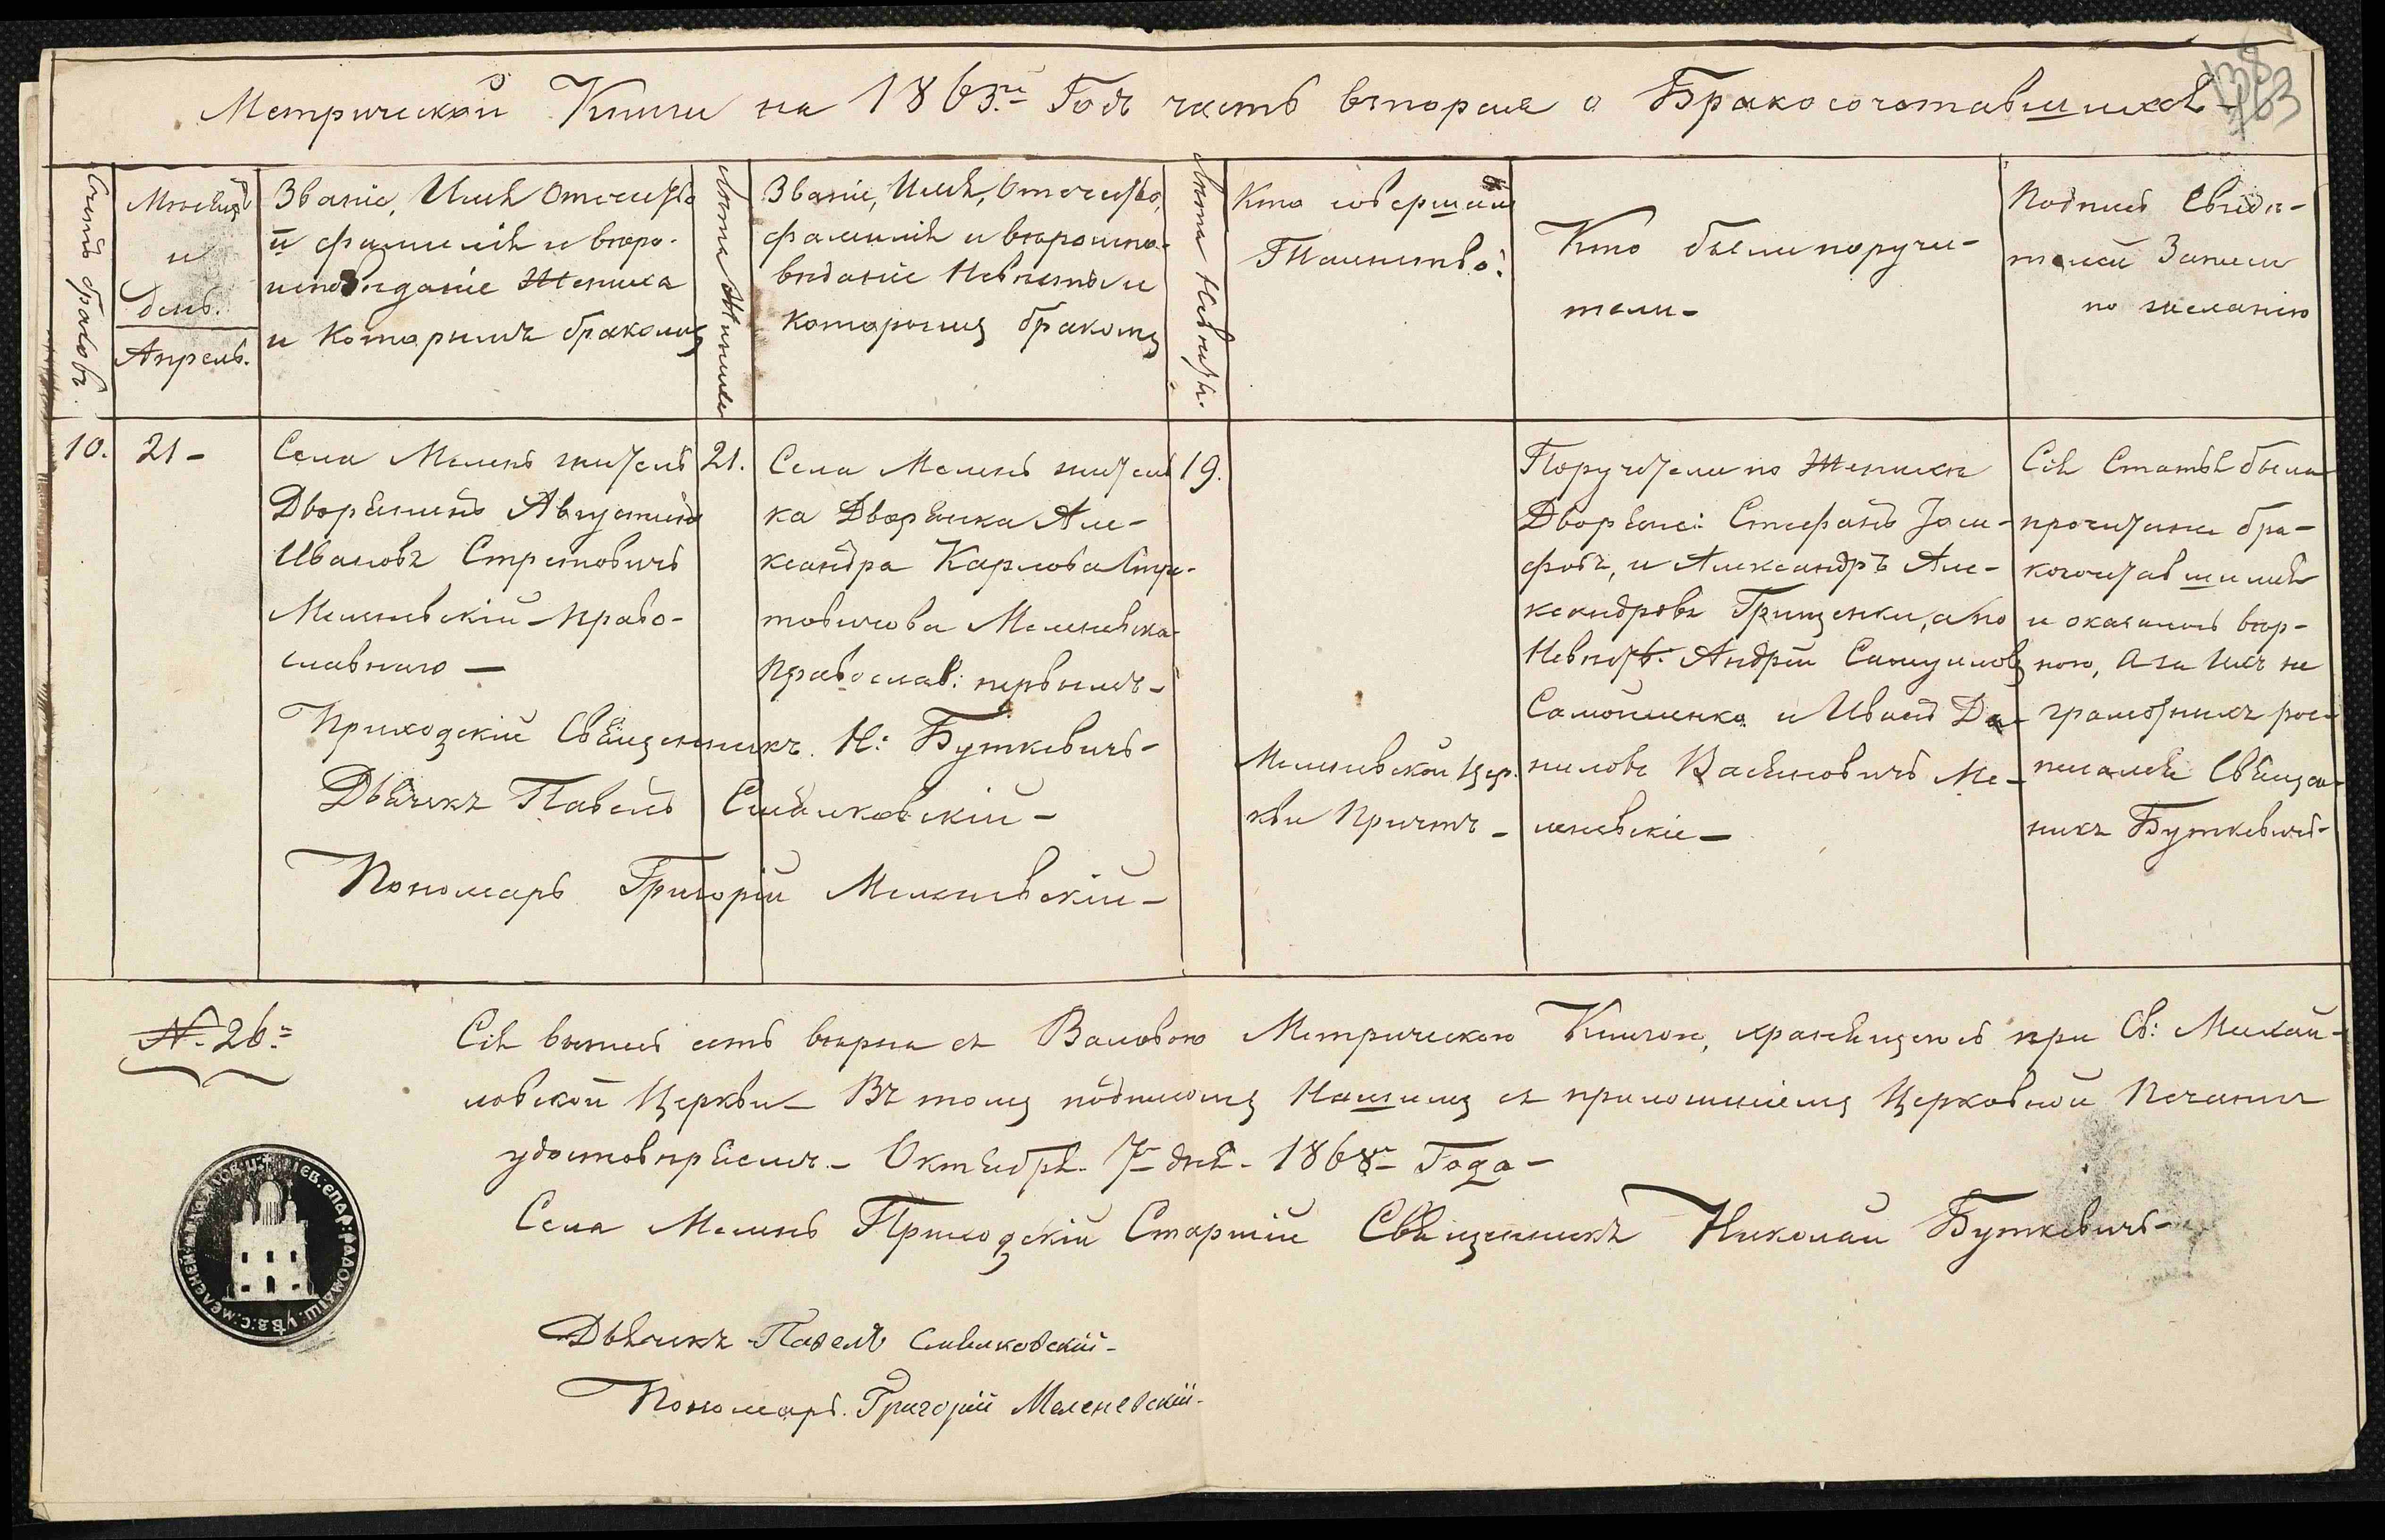 Метрической Книги на 1863й Годъ часть вторая о Бракосочетавшихся
138
703
Счетъ браковъ.
Мѣсяцъ
и
день.
Апрель.
Званіе, Имя Отечество
и фамилія и вѣро-
исповѣданіе Жениха
и Которымъ бракомъ
Лѣта Жениха
Званіе, Имя, Отечество,
фамилія и вѣроиспо-
вѣданіе Невѣсты и
Которымъ бракомъ
Лѣта Невѣсты.
Кто совершалъ
Таинство:
Кто были поручи-
тели-
Подпись Свидѣ-
телей Записи
по желанію
10.
21-
Села Мелень житель
Дворянинъ Августинъ
Ивановъ Стретовичъ
Меленевскій-право-
славнаго-
21.
Села Мелень житель
ка Дворянка Але-
ксандра Карлова Стре-
товичова Меленевска-
Православ: первымъ-
19.
Меленевской Цер.
кви Причтъ-
Поручители по Женихѣ
Дворяне: Стефанъ Іоси-
фовъ, и Александръ Але-
ксандровъ Грищенки, а по
Невѣстѣ: Андрій Самуиловъ
Самойленко и Иванъ Да-
ниловъ Васяновичъ Ме-
леневскіе-
Сія Статья была
прочитана бра-
косочетавшимся
и оказалась вѣр-
ною, А за Ихъ не
грамотныхъ рос-
писался Священ-
никъ Буткевичъ-
Приходскій Священникъ Н: Буткевичъ-
Дьячекъ Павелъ Смѣлковскій-
Пономарь Григорій Меленевскій-
№ 26.
Сія выпись есть вѣрна съ Валовою Метрическою Книгою, хранящеюсь при Св: Михай-
ловской Церкви- Въ томъ подписомъ Нашимъ съ приложеніемъ Церковной Печати
удостовѣряемъ.- Октября 7го дня- 1868го Года-
Села Мелень Приходскій Старшій Священникъ Николай Буткевичъ-
Дьячекъ Павелъ Смѣлковскій-
Пономарь. Григорій Меленевскій-